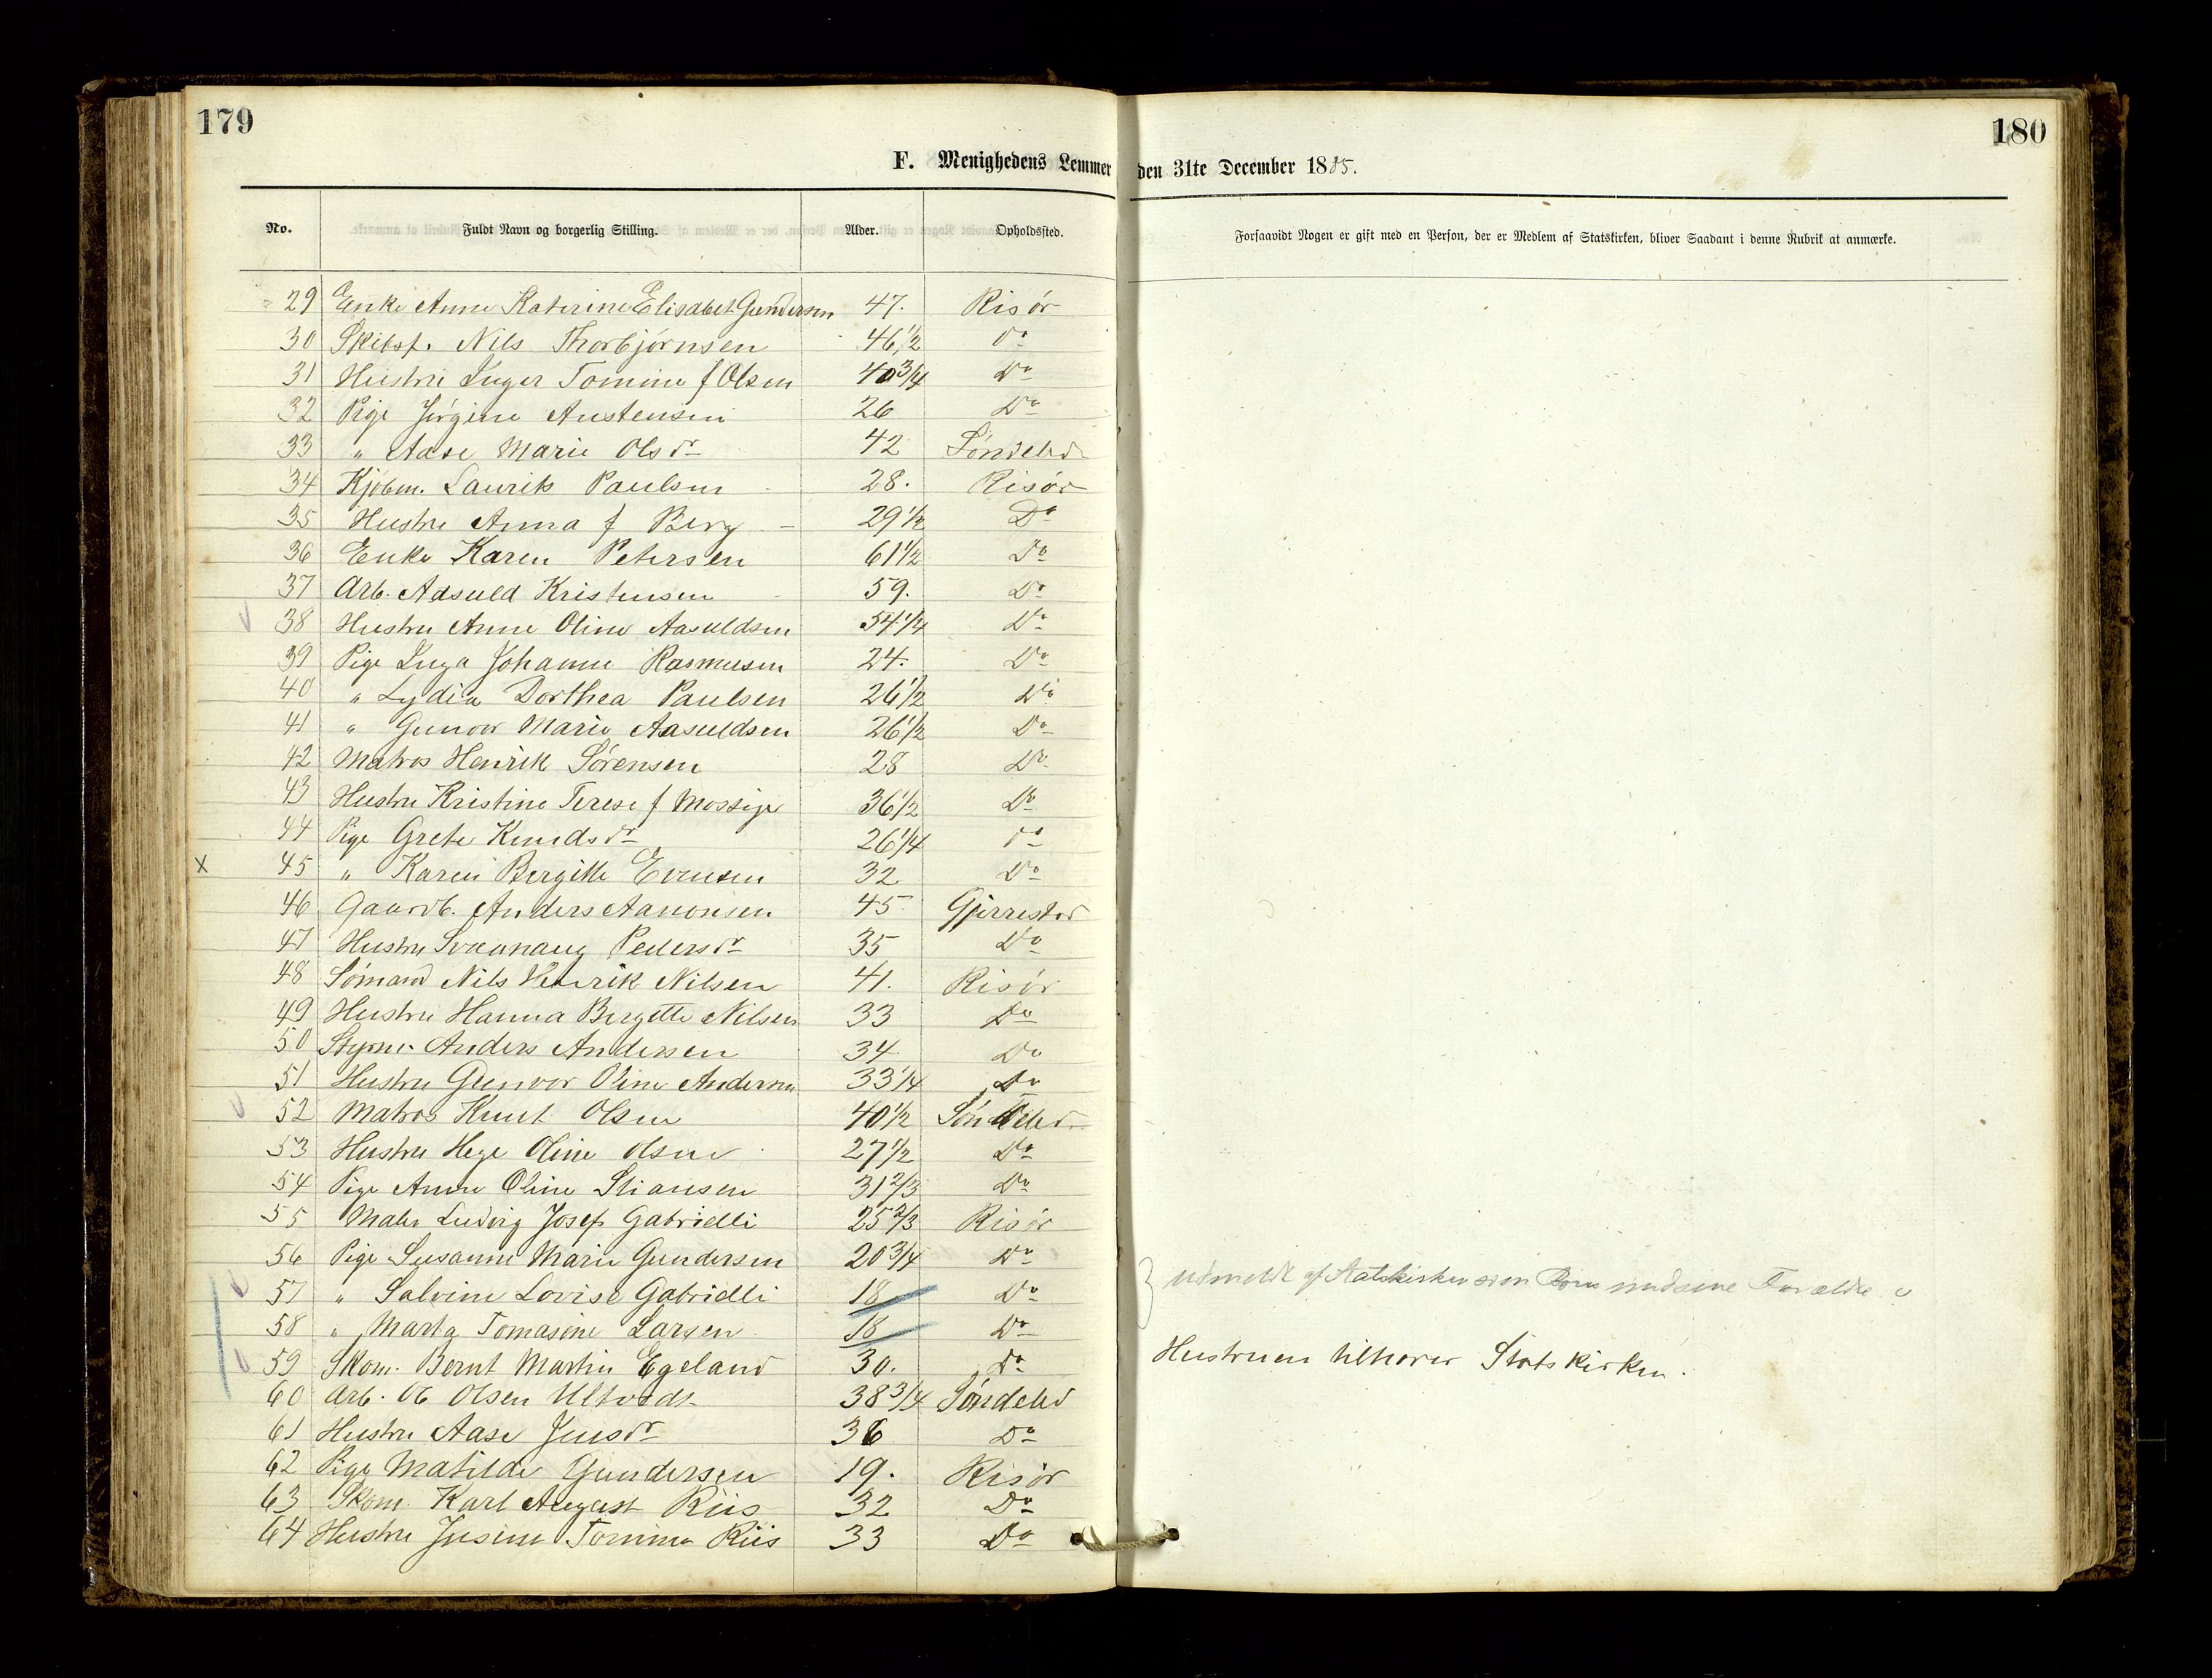 179
180
F. Menighedens Lemmer den 31te December 1885.
No. Fuldt Navn og borgerlig Stilling. Alder. Opholdssted. Forsaavidt Nogen er gift med en Person, der er Medlem af Statskirken, bliver Saadant i denne Rubrik at anmærke.
29 Enke Anne Katerine Elisabet Gundersen 47. Risör
30 Skibsf. Nils Thorbjörnsen 46 1/2 Do
31 Hustru Inger Tomine f Olsen 40 3/4 Do
32 Pige Jörgine Austensen 26 Do
33 " Aase Marie Olsdr 42 Söndeled
34 Kjöbm. Laurits Paulsen 28. Risör
35 Hustru Anna f Berg 29 1/2 Do
36 Enke Karen Petersen 61 1/2 Do
37 Arb. Adsuld Kristensen 59. Do
38 Hustru Anne Oline Aasuldsen 54 1/4 Do
39 Pige Inga Johanne Rasmusen 24. Do
40 " Lydia Dorthea Paulsen 26 1/2 Do
41 " Gunvor Marie Aasuldsen 26 1/2 Do
42 Matros Henrik Sörensen 28 Do
43 Hustru Kristine Terese f Mossige 36 1/2 Do
44 Pige Grete Knudsdr 26 1/4 Do
x 45 " Karen Bergitte Evensen 32 Do
46 Gaardb. Anders Aanonsen 45 Gjerrestad
47 Hustru Svaunaug Pedersdr 35 Do
48 Sömand Nils Henrik Nilsen 41. Risör
49 Hustru Hanna Birgitte Nilsen 33 Do
50 Styrm. Anders Andersen 34 Do
51 Hustru Gunvor Oline Andersen 33 1/4 Do
52 Matros Knut Olsen 40 1/2 Söndeled
53 Hustru Hege Oline Olsen 27 1/2 Do
54 Pige Anne Oline Stiansen 31 2/3 Do
55 Maler Ludvig Josef Gabrielli 25 2/3 Risör
56 Pige Susanne Marie Gundersen 20 3/4 Do
57 " Salvine Lovise Gabrielli 18 Do
58 " Marta Tomasine Larsen 18 Do
} udmeldt af Statskirken som Börn med sine Forældre
59 Skom. Bernt Martin Egeland 30. Do Hustruen tilhörer Statskirken.
60 Arb. Ole Olsen 38 3/4 Söndeled
61 Hustru Aase Jensdr 36 Do
62 Pige Matilde Gundersen 19. Risör
63 Skom. Karl August Riis 32 Do
64 Hustru Jensine Tomine Riis 33 Do